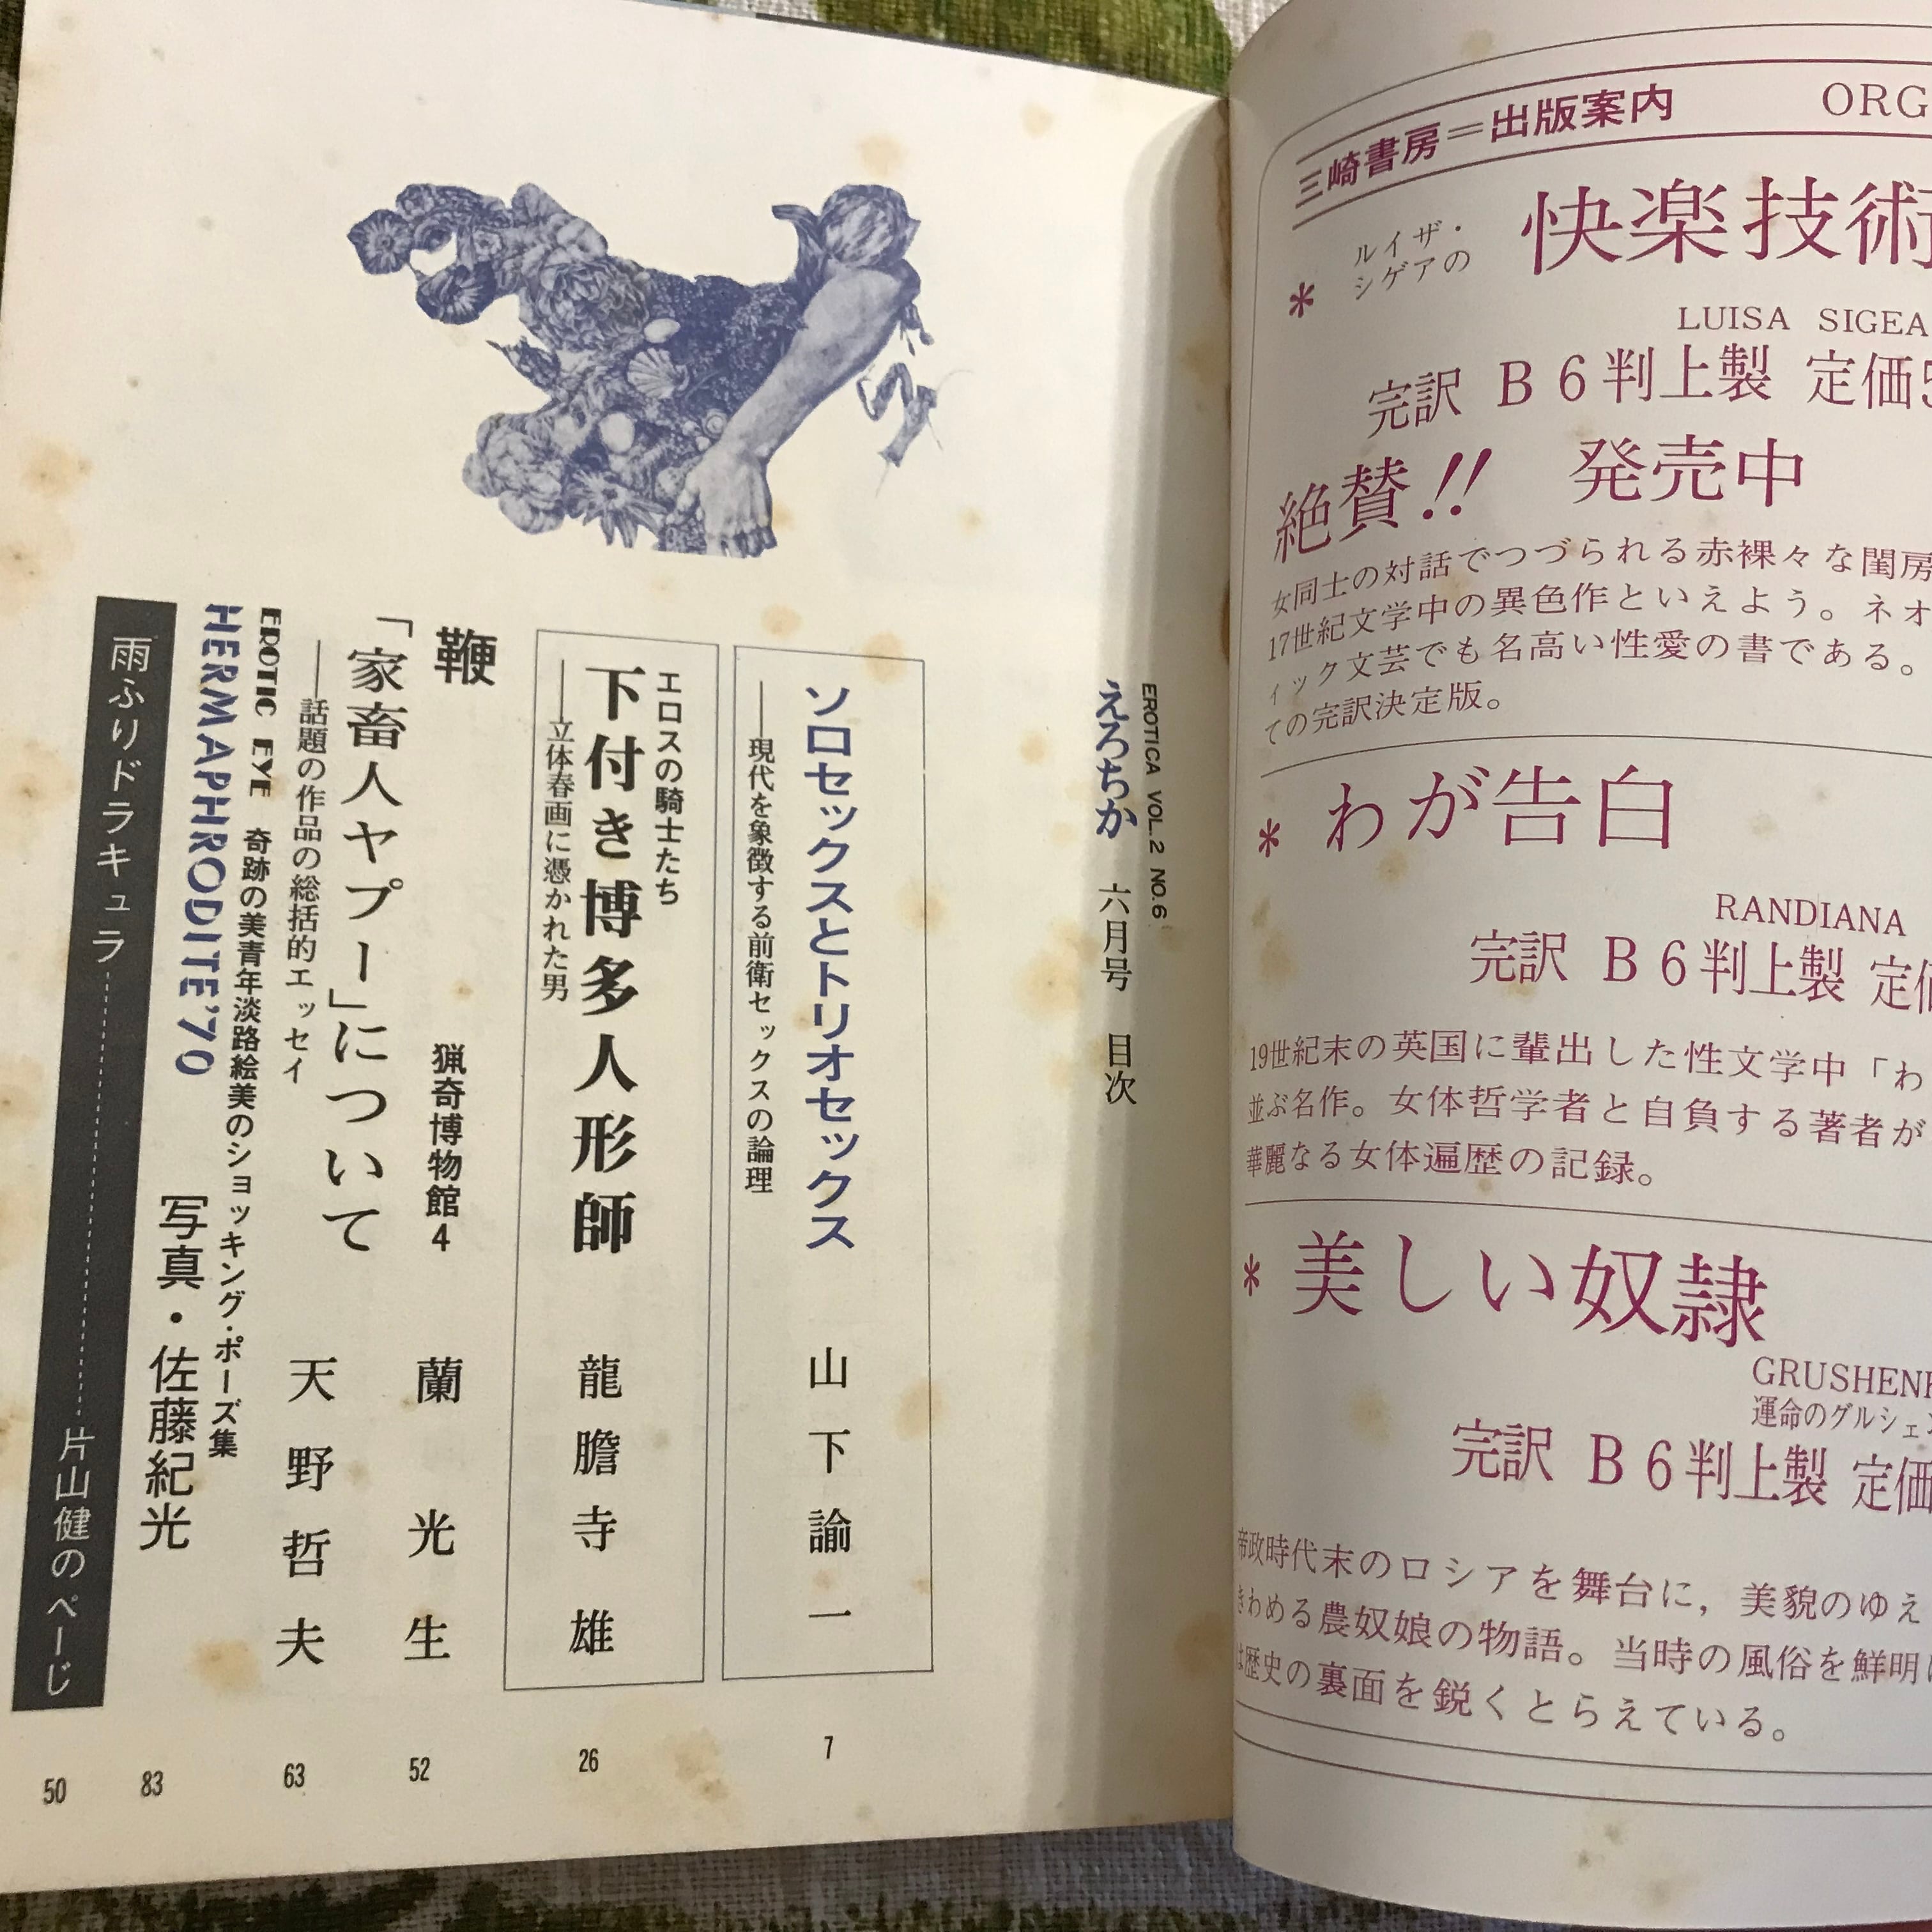 EROTICA VOL.2 NO.6
えろちか 六月号 目次
ソロセックスとトリオセックス 山下諭一 7
——現代を象徴する前衛セックスの論理
エロスの騎士たち
下付き博多人形師 龍膽寺雄 26
——立体春画に憑かれた男
鞭 猟奇博物館4 蘭光生 52
「家畜人ヤプー」について 天野哲夫 63
——話題の作品の総括的エッセイ
EROTIC EYE 奇跡の美青年淡路絵美のショッキング・ポーズ集
HERMAPHRODITE'70 写真・佐藤紀光 83
雨ふりドラキュラ 片山健のページ 50
三崎書房=出版案内 ORG
*ルイザ・
シゲアの
快楽技術
LUISA SIGEA
完訳 B6判上製 定価
絶賛!! 発売中
女同士の対話でつづられる赤裸々な閨房
17世紀文学中の異色作といえよう。ネオ
ィック文芸でも名高い性愛の書である。
ての完訳決定版。
*わが告白
RANDIANA
完訳 B6判上製 定価
19世紀末の英国に輩出した性文学中「わ
並ぶ名作。女体哲学者と自負する著者が
華麗なる女体遍歴の記録。
*美しい奴隷
GRUSHENK
運命のグルシェン
完訳 B6判上製 定価
帝政時代末のロシアを舞台に,美貌のゆえ
きわめる農奴娘の物語。当時の風俗を鮮明に
は歴史の裏面を鋭くとらえている。